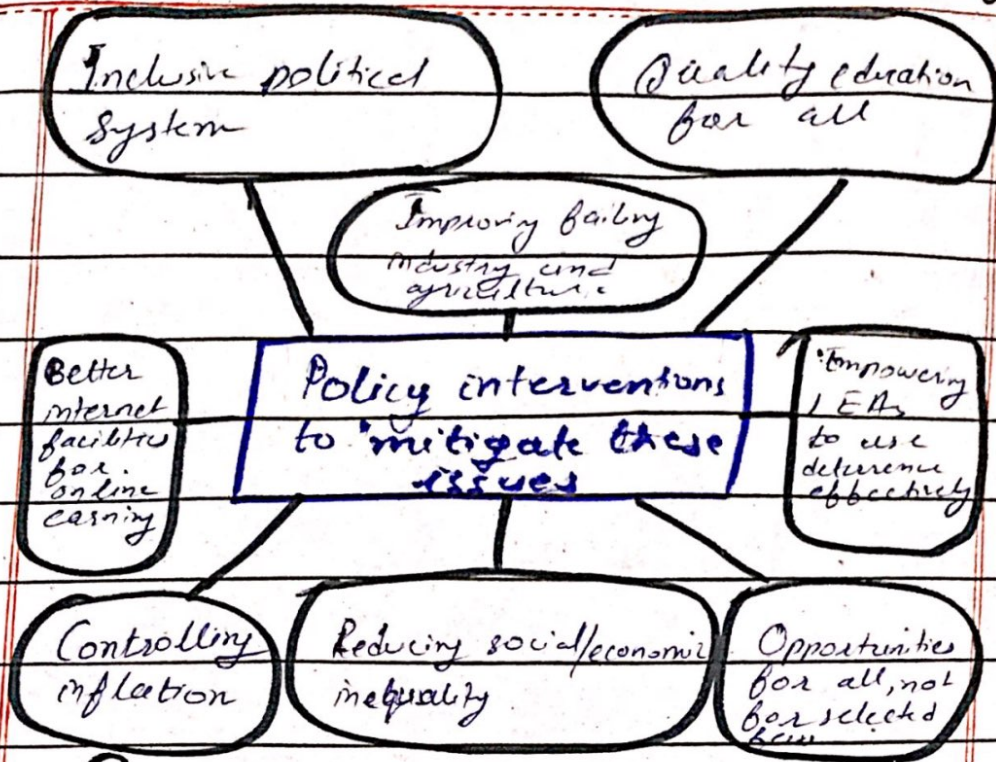 Inclusive political
System
Quality education
for all
Improving failing
industry and
agriculture
Better
internet
facilities
for
online
earning
Policy interventions
to mitigate these
issues
Empowering
LEAs
to use
deterrence
effectively
Controlling
inflation
Reducing social/economic
inequality
Opportunities
for all, not
for selected
few